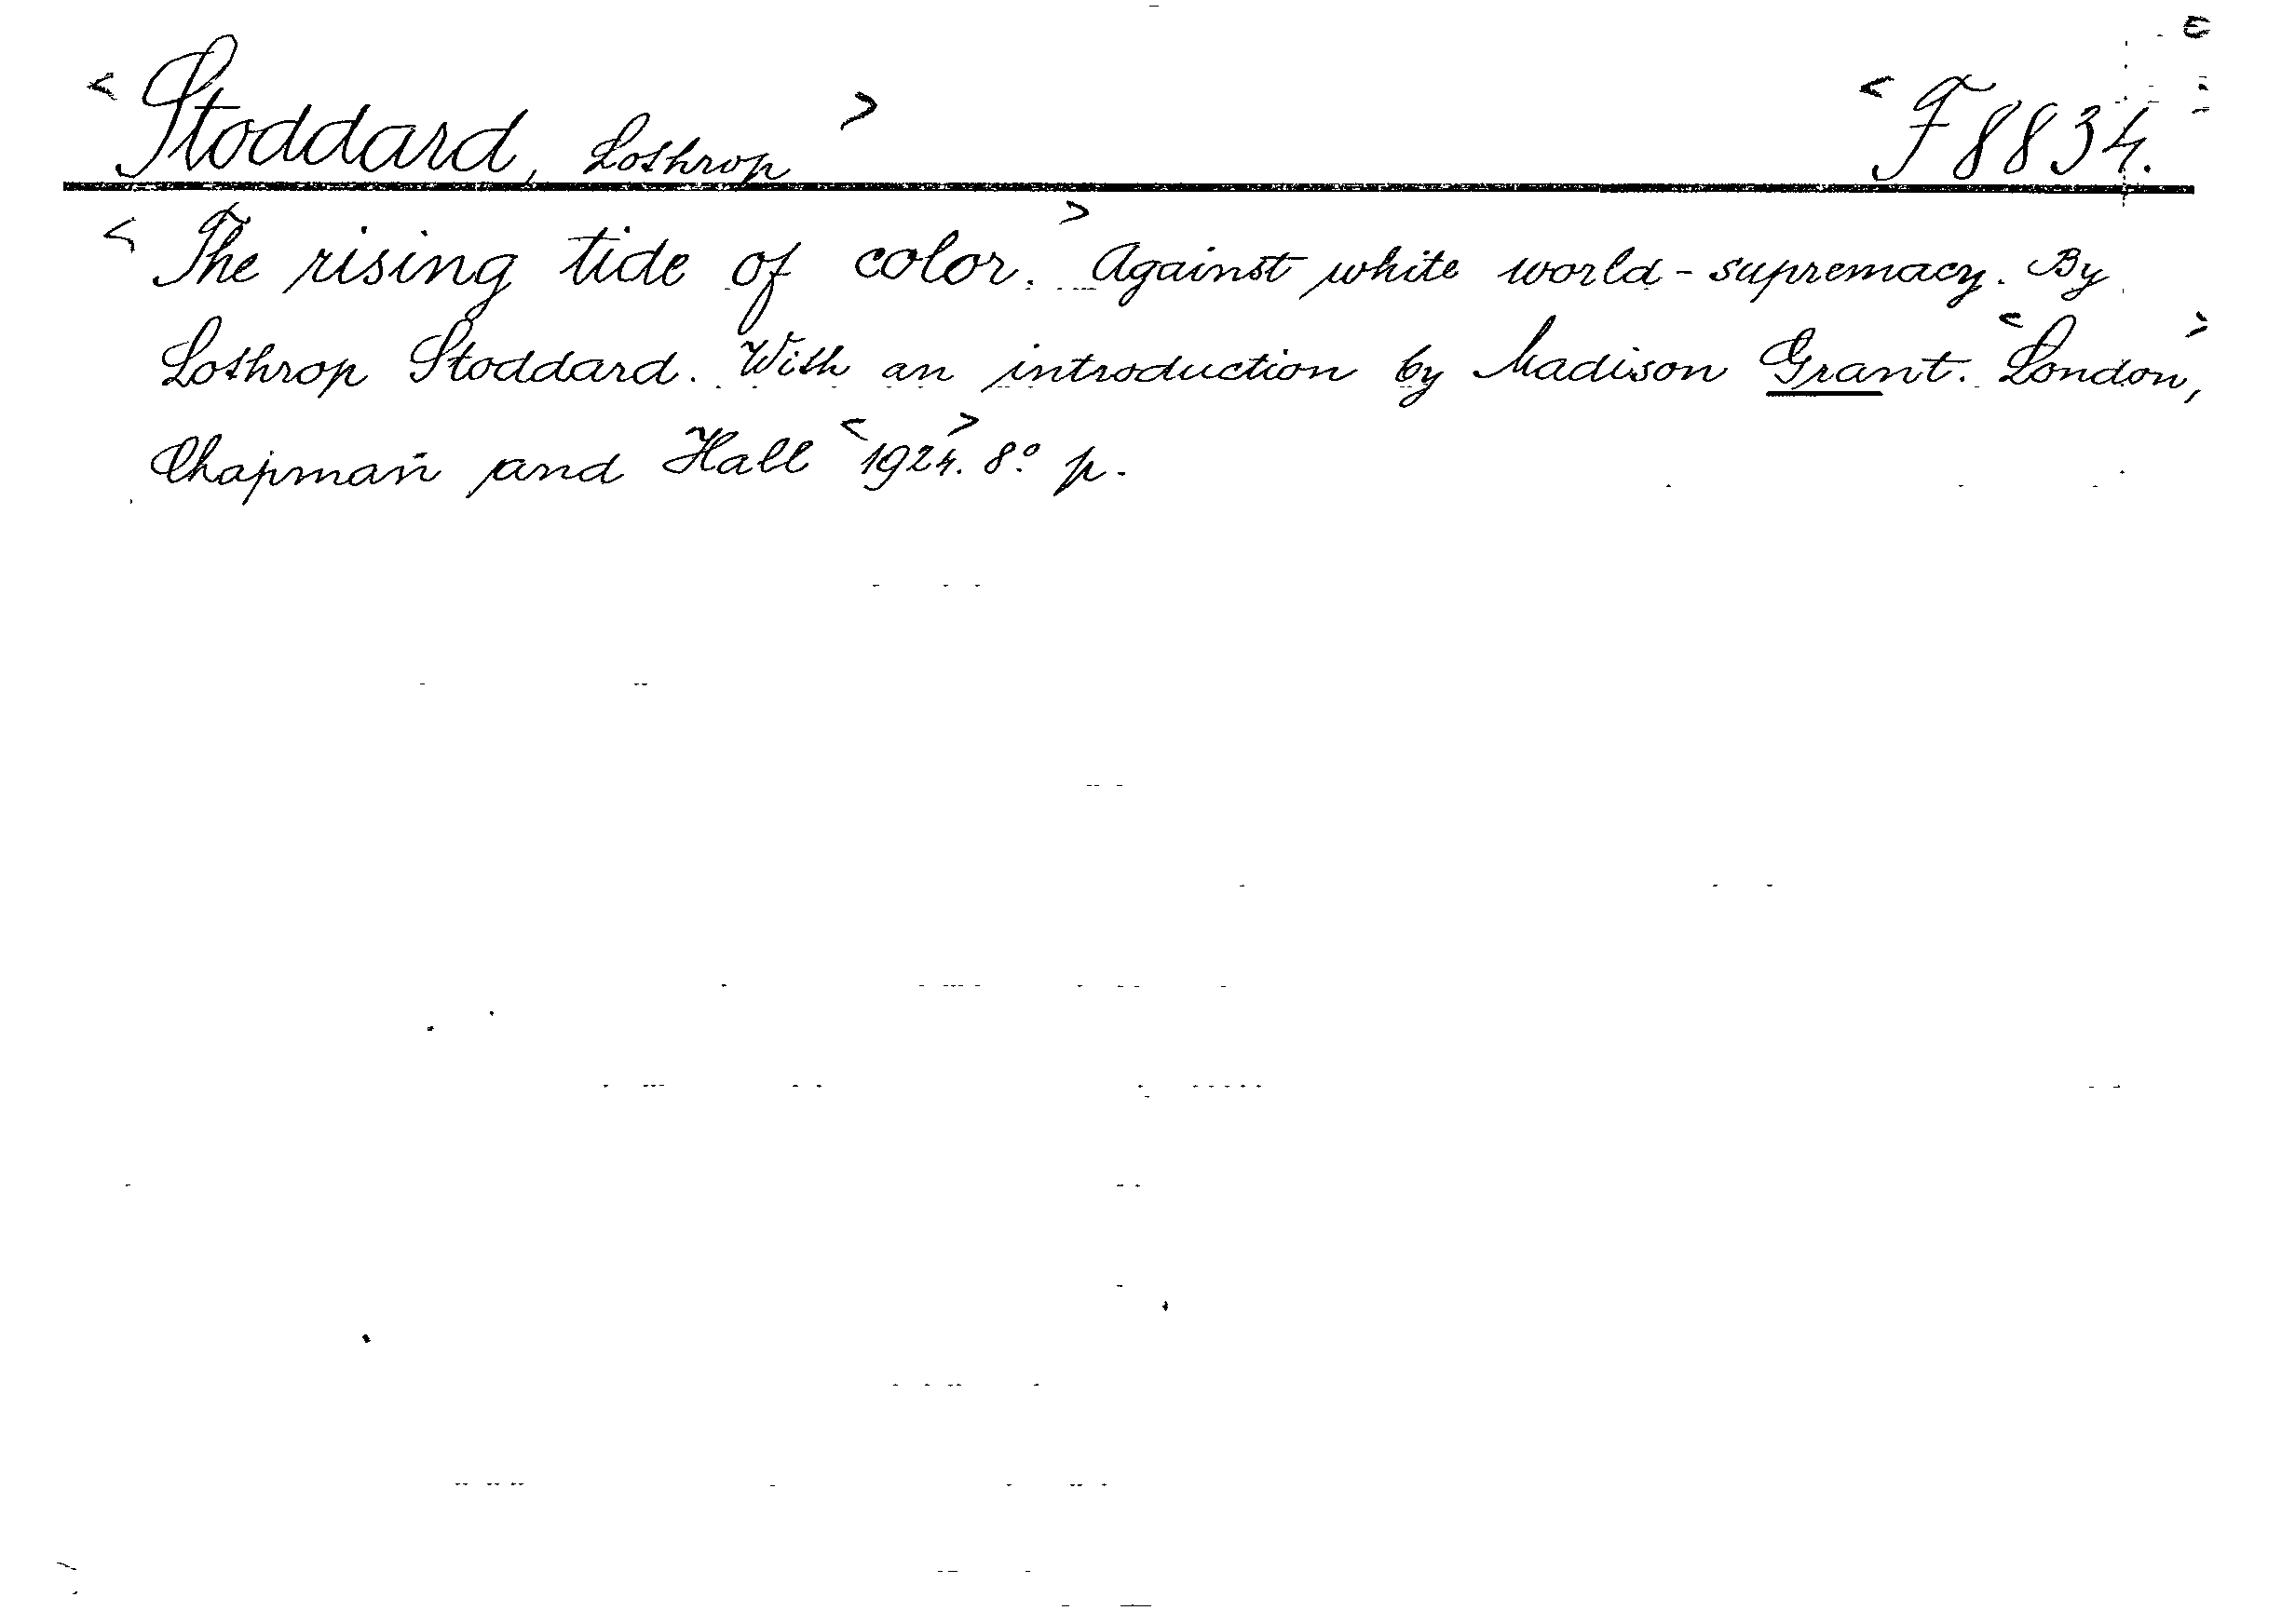 < Stoddard, Lothrop > < F 8834.
< The rising tide of color. > Against white world-supremacy. By
Lothrop Stoddard. With an introduction by Madison Grant. < London, >
Chapman and Hall < 1924. > 8° p.